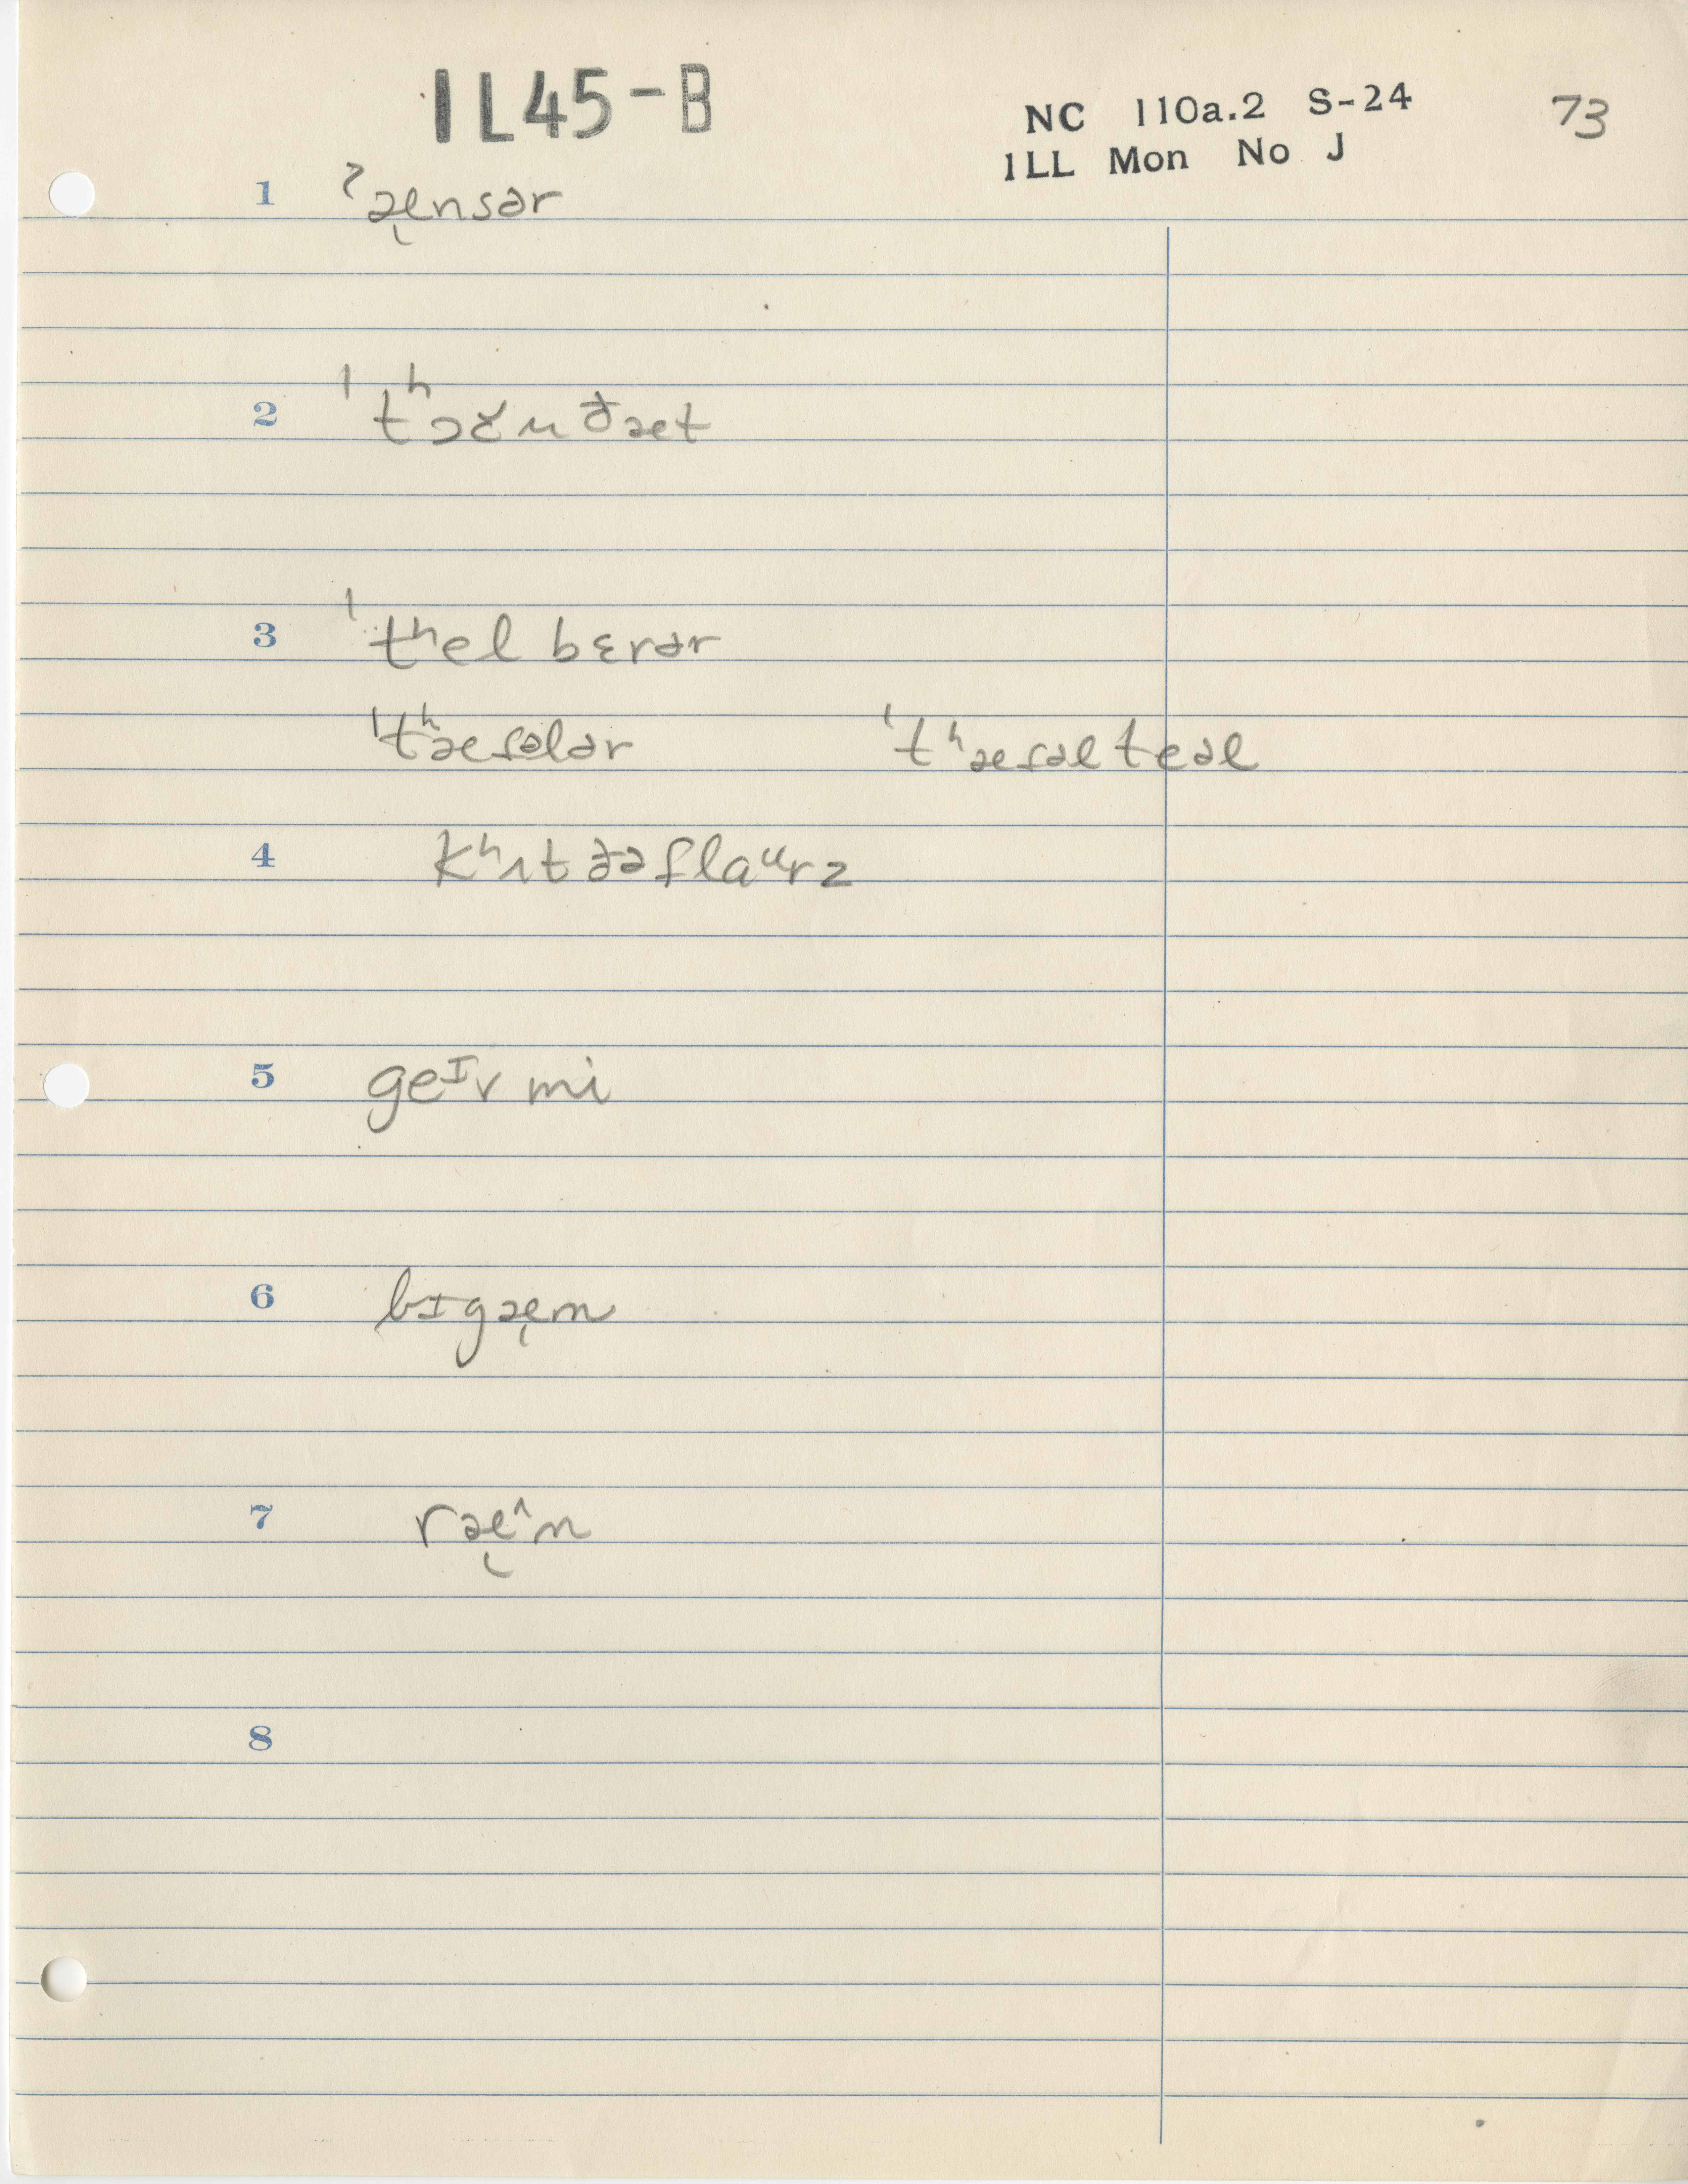 IL45-B
NC 110a.2 S-24 73
ILL Mon No J
1 ˀæ̨nsər
2 ˈtʰɔɤɯ ðæt
3 ˈtʰel bɛrər
ˈtʰæsələr ˈtʰæsəl teəl
4 kʰʌt ðə flaᵘrz
5 geᴵv mi
6 bɪgæ̨m
7 ræ̨ᶺm
8